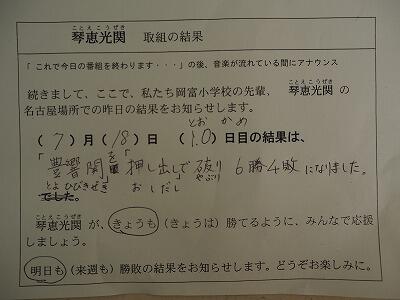 ことえこうぜき
琴恵光関 取組の結果
「これで今日の番組を終わります・・・」の後、音楽が流れている間にアナウンス
ことえこうぜき
続きまして、ここで、私たち岡富小学校の先輩、 琴恵光関 の
名古屋場所での昨日の結果をお知らせします。
とお かめ
( 7 ) 月 ( 18 ) 日 ( 10 ) 日目の結果は、
「豊響関」を「押し出し」で破り 6勝4敗になりました。
とよひびきぜき おしだし やぶり
でした。
ことえこうぜき
琴恵光関 が、きょうも (きょうは) 勝てるように、みんなで応援
しましょう。
明日も (来週も) 勝敗の結果をお知らせします。どうぞお楽しみに。